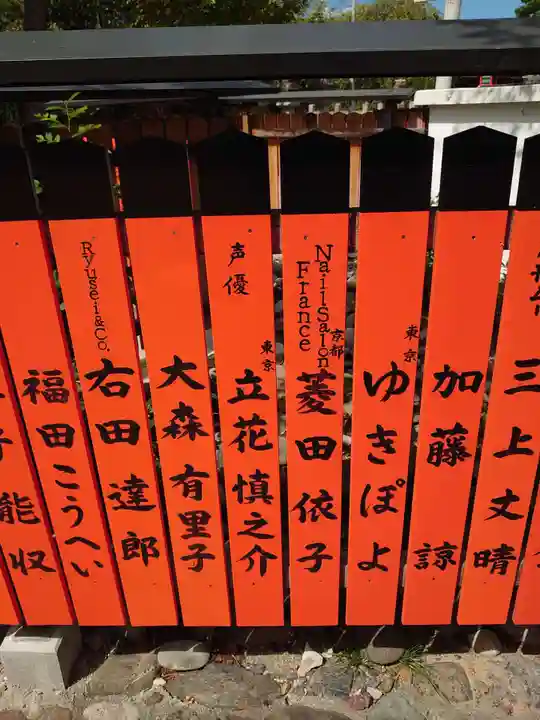 三上丈晴
加藤諒
東京
ゆきぽよ
Nail Salon
France
京都
菱田依子
声優
東京
立花慎之介
大森有里子
Ryusei&Co.
右田達郎
福田こうへい
能収